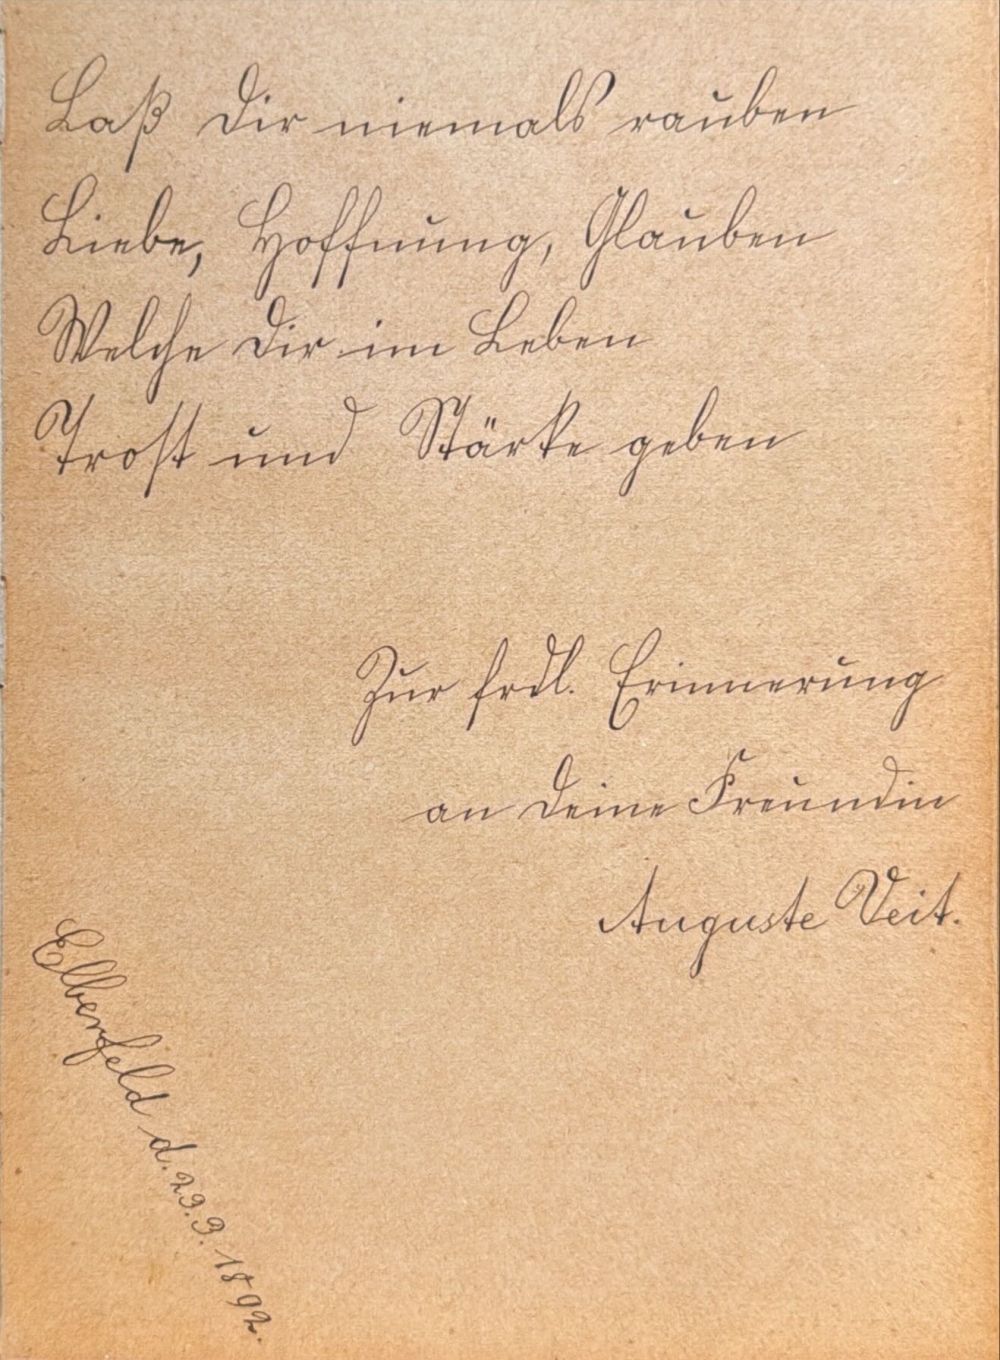 Laß Dir niemals rauben
Liebe, Hoffnung, Glauben
Welche Dir im Leben
Trost und Stärke geben
Zur frdl. Erinnerung
an Deine Freundin
Auguste Veit.
Elberfeld d. 29.3. 1892.